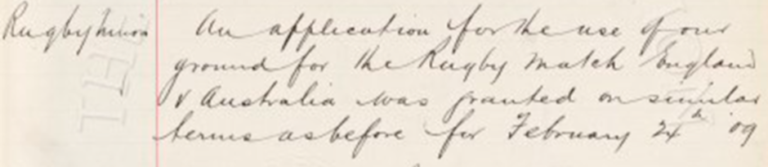 Rugby Union An application for the use of our
ground for the Rugby Match England
v Australia was granted on similar
terms as before for February 24th '09